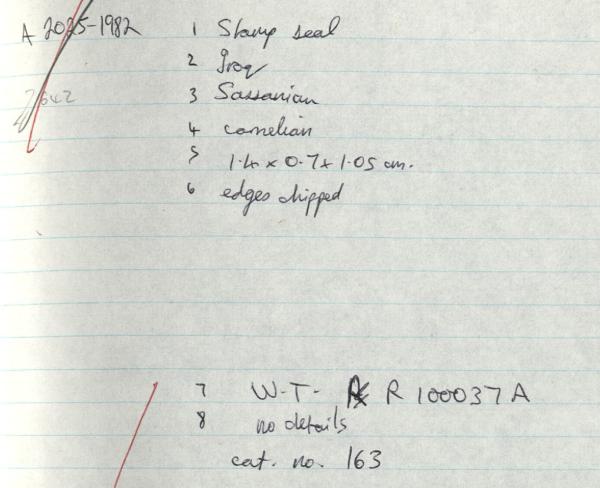 A 2025-1982 1 Stamp seal
2 Iraq
3 Sassanian
642
4 carnelian
5 1.4 x 0.7 x 1.05 cm.
6 edges chipped
7 W-T- R 100037A
8 no details
cat. no. 163